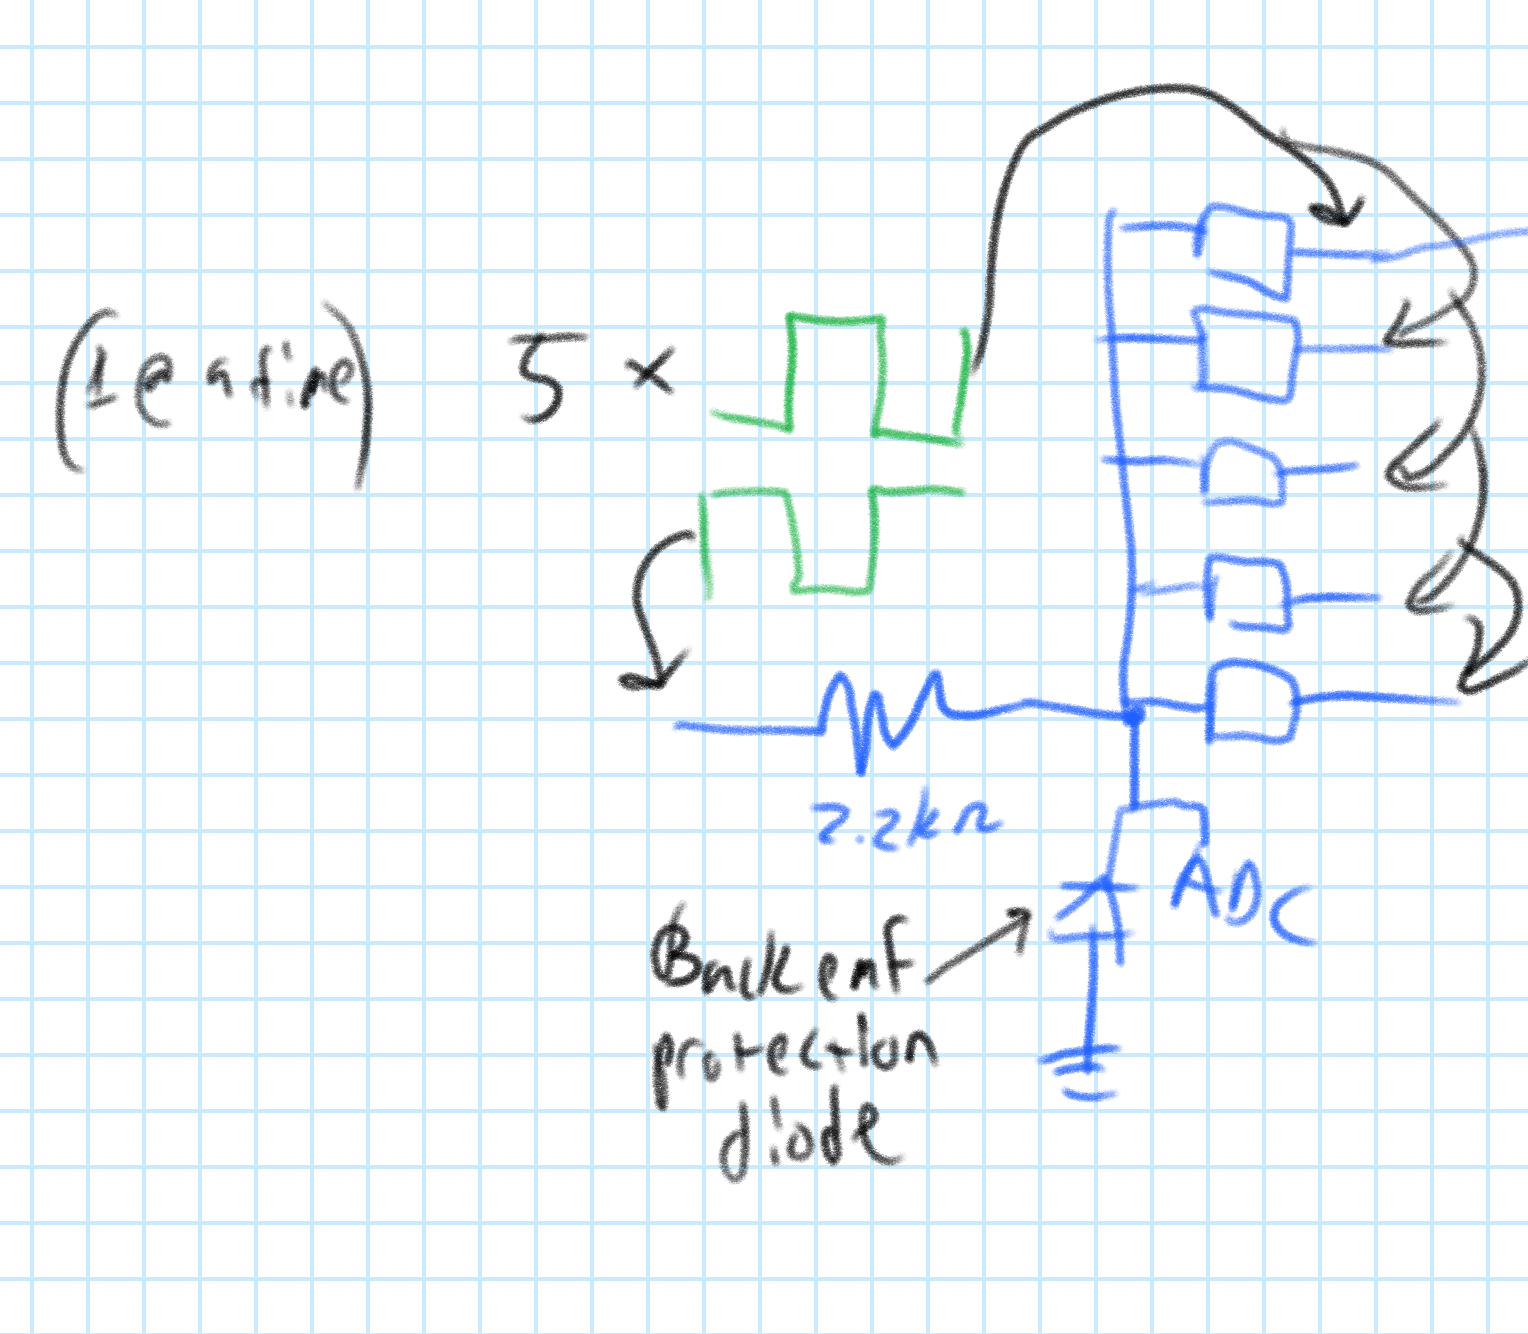 (1 @ a time) 5 ×
2.2kΩ
ADC
Back emf
protection
diode